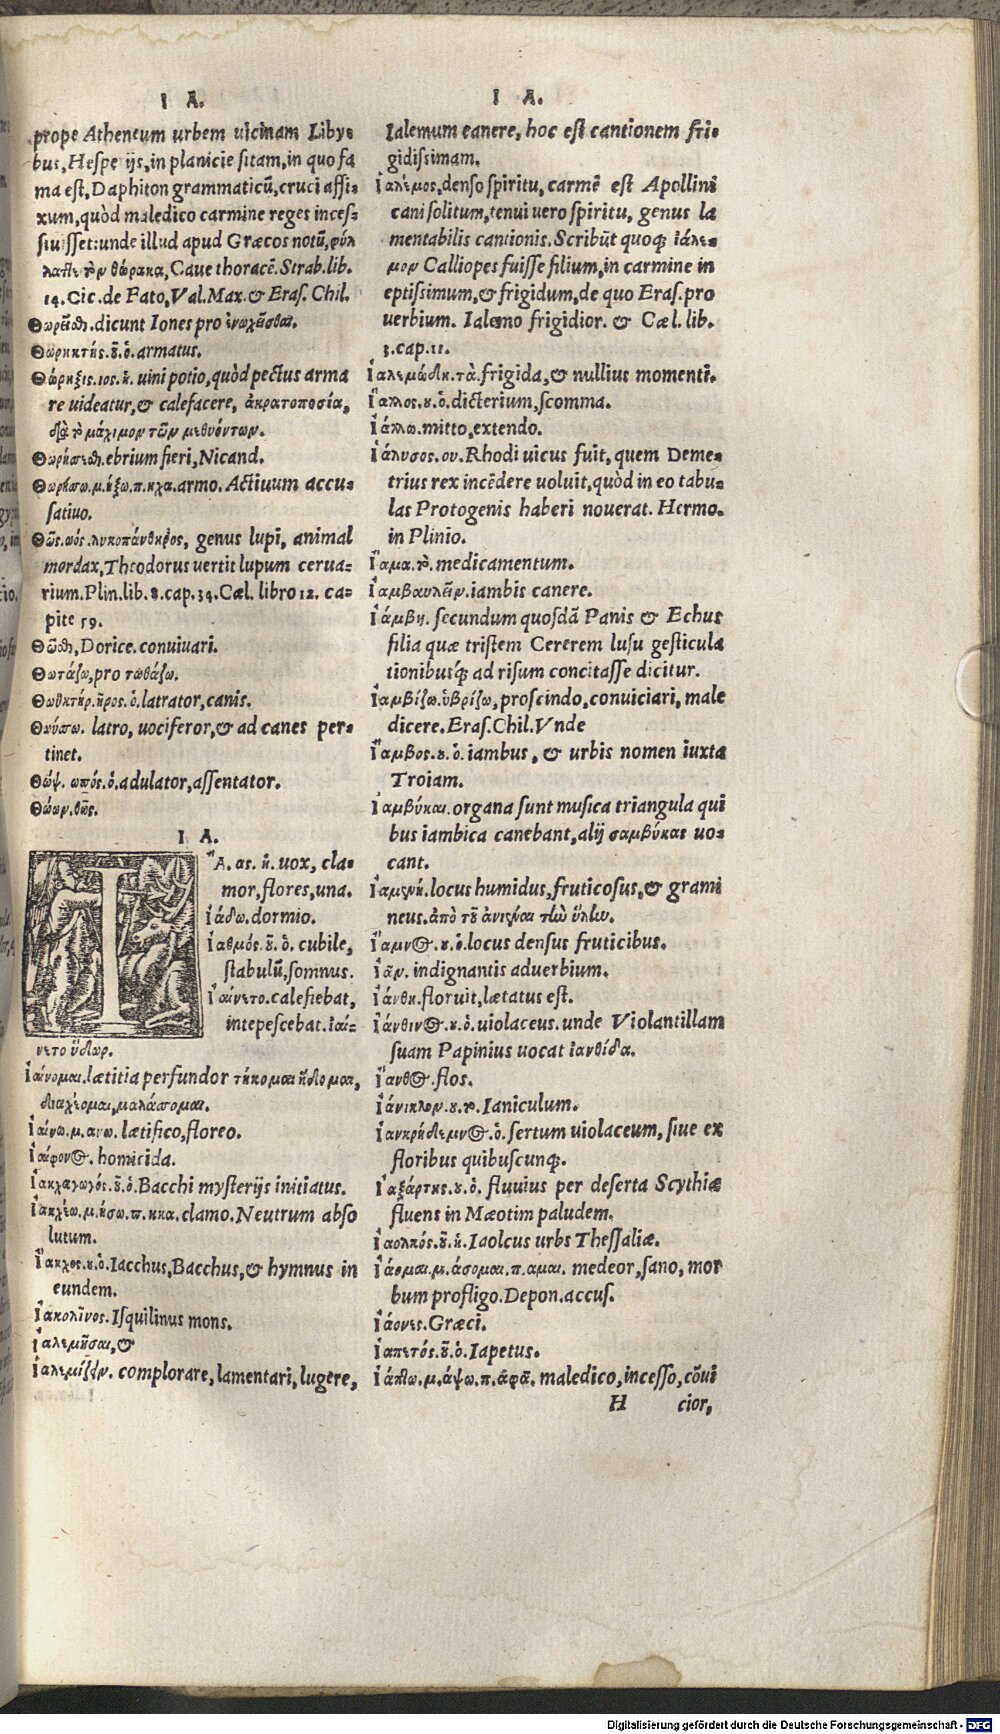 I A.
prope Atheneum urbem uicinam Liby-
bus, Hespe ijs, in planicie sitam, in quo fa
ma est, Daphiton grammaticũ, cruci affi-
xum, quòd maledico carmine reges inces-
siuisset: unde illud apud Græcos notũ, φύλ
λαττε τὸν θώρακα, Caue thoracẽ. Strab. lib.
14. Cic. de Fato, Val. Max. & Eras. Chil.
dicunt Iones pro
Θωρηκτής. ȣ͂. ὁ. armatus.
Θώρηξις. ιος. ἡ. uini potio, quòd pectus arma
re uideatur, & calefacere, ἀκρατοποσία,
διὰ τὸ μάχιμον τῶν μεθυόντων.
ebrium fieri, Nicand.
Θωρήσσω. μ. ήξω. π. ηχα. armo. Actiuum accu-
satiuo.
Θώς. ωός. λυκοπάνθηρος, genus lupi, animal
mordax, Theodorus uertit lupum cerua-
rium. Plin. lib. 8. cap. 34. Cæl. libro 12. ca-
pite 59.
Dorice. conuiuari.
Θωτάζω, pro τωθάζω.
Θωϋκτήρ. ῆρος. ὁ. latrator, canis.
Θωύσσω. latro, uociferor, & ad canes per-
tinet.
Θώψ. ωπός. ὁ. adulator, assentator.
Θώων. θῶς.
I A.
ἼΑ. ας. ἡ. uox, cla-
mor, flores, una.
ἰάδω. dormio.
ἰαθμός. ȣ͂. ὁ. cubile,
stabulũ, somnus.
ἰαίνετο. calefiebat,
intepescebat. ἰαί-
νετο ὕδωρ.
ἰαίνομαι. lætitia perfundor τήκομαι ἥδομαι,
διαχέομαι, μαλάσσομαι.
ἰαίνω. μ. ανω. lætifico, floreo.
homicida.
ἰακχαγωγός. ȣ͂. ὁ. Bacchi mysterijs initiatus.
ἰακχέω. μ. ήσω. π. ηκα. clamo. Neutrum abso
lutum.
ἴακχος. ȣ. ὁ. Iacchus, Bacchus, & hymnus in
eundem.
ἰακολῖνος. Isquilinus mons.
ἰαλεμῆσαι, &
ἰαλεμίζειν. complorare, lamentari, lugere,
I A.
Ialemum canere, hoc est cantionem fri-
gidissimam.
ἰάλεμος, denso spiritu, carmẽ est Apollini
cani solitum, tenui uero spiritu, genus la
mentabilis cantionis. Scribũt quoqꝫ ἰάλε-
μον Calliopes fuisse filium, in carmine in
eptissimum, & frigidum, de quo Eras. pro
uerbium. Ialemo frigidior. & Cæl. lib.
3. cap. 11.
ἰαλεμώδη. τὰ. frigida, & nullius momenti.
ἴαλλος. ȣ. ὁ. dicterium, scomma.
ἰάλλω. mitto, extendo.
ἰάλυσος. ου. Rhodi uicus fuit, quem Deme-
trius rex incẽdere uoluit, quòd in eo tabu-
las Protogenis haberi nouerat. Hermo.
in Plinio.
ἴαμα. τὸ. medicamentum.
ἰαμβαυλεῖν. iambis canere.
ἰάμβη. secundum quosdã Panis & Echus
filia quæ tristem Cererem lusu gesticula
tionibusqꝫ ad risum concitasse dicitur.
ἰαμβίζω. ὑβρίζω, proscindo, conuiciari, male
dicere. Eras. Chil. Vnde
ἴαμβος. ȣ. ὁ. iambus, & urbis nomen iuxta
Troiam.
ἰαμβύκαι. organa sunt musica triangula qui
bus iambica canebant, alij σαμβύκας uo-
cant.
locus humidus, fruticosus, & grami
neus. ἀπὸ τοῦ
ἴαμνος. ȣ. ὁ. locus densus fruticibus.
ἰᾶν. indignantis aduerbium.
ἰάνθη. floruit, lætatus est.
ἰάνθινος. ȣ. ὁ. uiolaceus. unde Violantillam
suam Papinius uocat ἰανθίδα.
ἴανθος. flos.
ἰάνικλον. ȣ. τὸ. Ianiculum.
ἰανκρήδεμνος. ὁ. sertum uiolaceum, siue ex
floribus quibuscunqꝫ.
ἰαξάρτης. ȣ. ὁ. fluuius per deserta Scythiæ
fluens in Mæotim paludem.
ἰαολκός. ȣ͂. ἡ. Iaolcus urbs Thessaliæ.
ἰάομαι. μ. άσομαι. π. αμαι. medeor, sano, mor
bum profligo. Depon. accus.
ἰάονες. Græci.
ἰαπετός. ȣ͂. ὁ. Iapetus.
ἰάπτω. μ. άψω. π. ᾶφα. maledico, incesso, cõui
H cior,
Digitalisierung gefördert durch die Deutsche Forschungsgemeinschaft - DFG